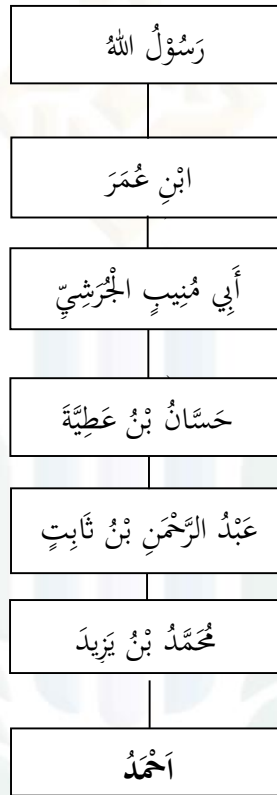 رَسُوْلُ اللهُ
ابْنِ عُمَرَ
أَبِي مُنِيبٍ الْجُرَشِيِّ
حَسَّانُ بْنُ عَطِيَّةَ
عَبْدُ الرَّحْمَنِ بْنُ ثَابِتٍ
مُحَمَّدُ بْنُ يَزِيدَ
اَحْمَدُ